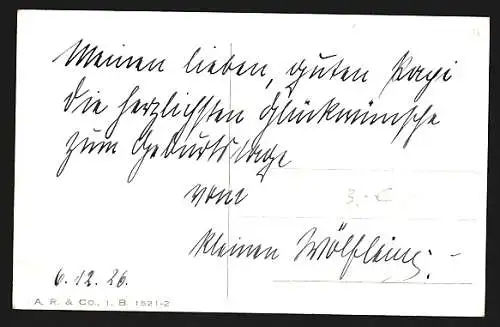 Meinen lieben, guten Papi
die herzlichsten Glückwünsche
zum Geburtstage
vom
3.-€
kleinen Wölflein.-
6.12.26.
A. R. & Co., I. B. 1521-2